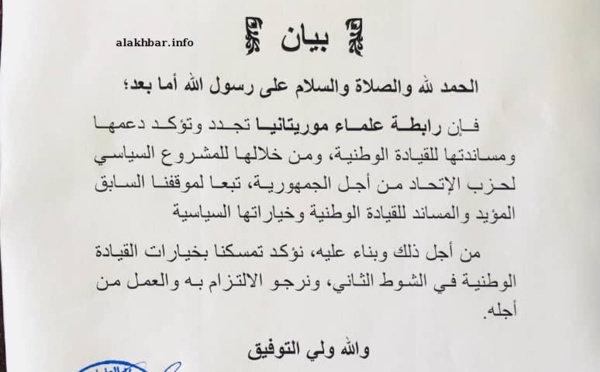 alakhbar.info
بيان
الحمد لله والصلاة والسلام على رسول الله أما بعد؛
فإن رابطة علماء موريتانيا تجدد وتؤكد دعمها
ومساندتها للقيادة الوطنية، ومن خلالها للمشروع السياسي
لحزب الإتحاد من أجل الجمهورية، تبعا لموقفنا السابق
المؤيد والمساند للقيادة الوطنية وخياراتها السياسية
من أجل ذلك وبناء عليه، نؤكد تمسكنا بخيارات القيادة
الوطنية في الشوط الثاني، ونرجو الالتزام به والعمل من
أجله.
والله ولي التوفيق